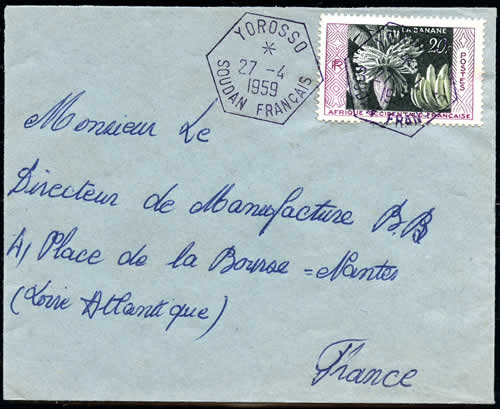 YOROSSO
*
27 -4
1959
SOUDAN FRANÇAIS
LA BANANE
20F
RF
POSTES
AFRIQUE OCCIDENTALE FRANÇAISE
FRAN
Monsieur Le
Directeur de Manufacture B.B
4, Place de la Bourse =Nantes
(Loire Atlantique)
France